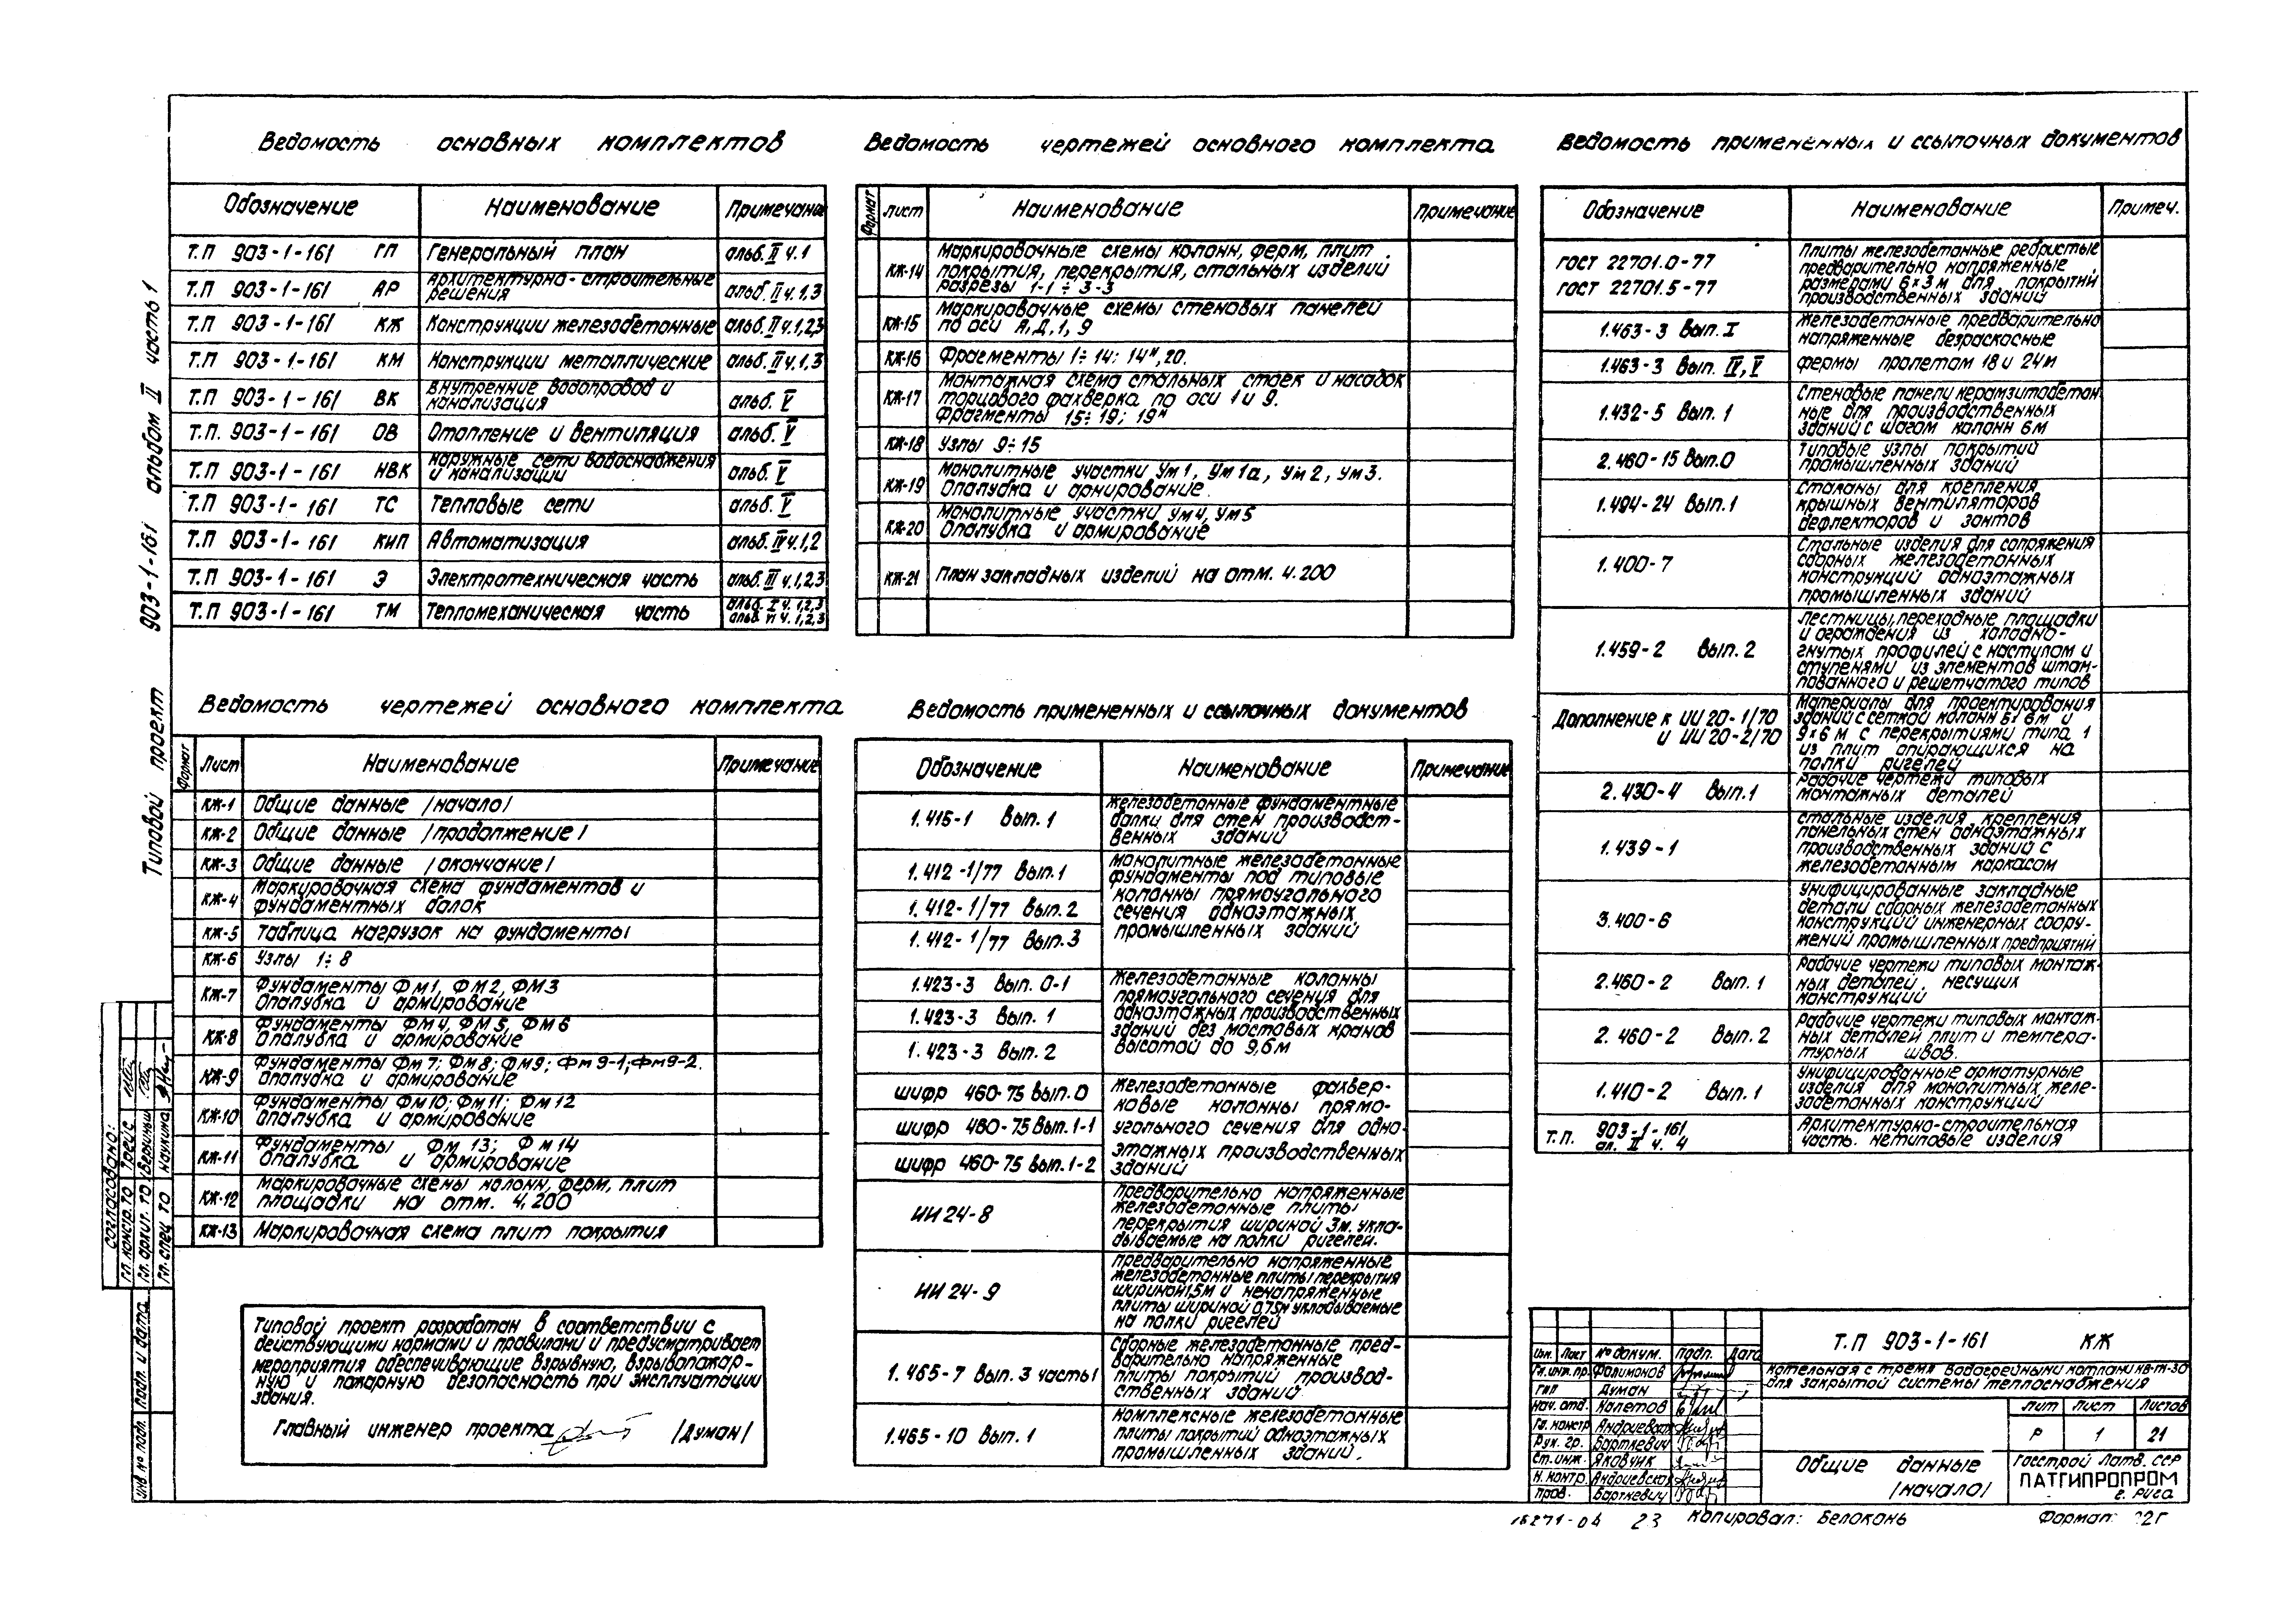 Типовой проект 903-1-161 альбом II часть 1
Ведомость основных комплектов
Обозначение Наименование Примечание
Т.П 903-1-161 ГП Генеральный план альб. II ч.1
Т.П 903-1-161 АР Архитектурно-строительные решения альб. II ч.1,3
Т.П 903-1-161 КЖ Конструкции железобетонные альб. II ч.1,2,3
Т.П 903-1-161 КМ Конструкции металлические альб. II ч.1,3
Т.П 903-1-161 ВК Внутренние водопровод и канализация альб. V
Т.П. 903-1-161 ОВ Отопление и вентиляция альб. V
Т.П 903-1-161 НВК Наружные сети водоснабжения и канализации альб. V
Т.П 903-1-161 ТС Тепловые сети альб. V
Т.П 903-1-161 КИП Автоматизация альб. IV ч.1,2
Т.П 903-1-161 Э Электротехническая часть альб. III ч.1,2,3
Т.П 903-1-161 ТМ Тепломеханическая часть альб. I ч.1,2,3
альб. VI ч.1,2,3
Ведомость чертежей основного комплекта
Формат Лист Наименование Примечание
КЖ-1 Общие данные /начало/
КЖ-2 Общие данные /продолжение/
КЖ-3 Общие данные /окончание/
КЖ-4 Маркировочная схема фундаментов и
фундаментных балок
КЖ-5 Таблица нагрузок на фундаменты
КЖ-6 Узлы 1÷8
КЖ-7 Фундаменты ФМ1, ФМ2, ФМ3
Опалубка и армирование
КЖ-8 Фундаменты ФМ4, ФМ5, ФМ6
Опалубка и армирование
КЖ-9 Фундаменты ФМ7; ФМ8; ФМ9; ФМ9-1; ФМ9-2.
Опалубка и армирование
КЖ-10 Фундаменты ФМ10; ФМ11; ФМ12
Опалубка и армирование
КЖ-11 Фундаменты ФМ 13; ФМ14
Опалубка и армирование
КЖ-12 Маркировочные схемы колонн, ферм, плит
площадки на отм. 4,200
КЖ-13 Маркировочная схема плит покрытия
Типовой проект разработан в соответствии с
действующими нормами и правилами и предусматривает
мероприятия обеспечивающие взрывную, взрывопожар-
ную и пожарную безопасность при эксплуатации
здания.
Главный инженер проекта /Думан/
Ведомость чертежей основного комплекта
Формат Лист Наименование Примечание
КЖ-14 Маркировочные схемы колонн, ферм, плит
покрытия, перекрытия, стальных изделий
разрезы 1-1 ÷ 3-3
КЖ-15 Маркировочные схемы стеновых панелей
по оси А, Д, 1, 9
КЖ-16 Фрагменты 1÷14; 14н, 20.
КЖ-17 Монтажная схема стальных стоек и насадок
торцового фахверка по оси 1 и 9.
Фрагменты 15÷19; 19н
КЖ-18 Узлы 9÷15
КЖ-19 Монолитные участки Ум1, Ум1а, Ум2, Ум3.
Опалубка и армирование.
КЖ-20 Монолитные участки Ум4, Ум5
Опалубка и армирование
КЖ-21 План закладных изделий на отм. 4.200
Ведомость примененных и ссылочных документов
Обозначение Наименование Примечание
1.415-1 Вып. 1 Железобетонные фундаментные
балки для стен производст-
венных зданий
1.412-1/77 Вып.1
1.412-1/77 Вып.2
1.412-1/77 Вып.3
Монолитные железобетонные
фундаменты под типовые
колонны прямоугольного
сечения одноэтажных
промышленных зданий
1.423-3 Вып. 0-1
1.423-3 Вып. 1
1.423-3 Вып. 2
Железобетонные колонны
прямоугольного сечения для
одноэтажных производственных
зданий без мостовых кранов
высотой до 9,6м
шифр 460-75 Вып.0
шифр 460-75 Вып.1-1
шифр 460-75 Вып.1-2
Железобетонные фахвер-
ковые колонны прямо-
угольного сечения для одно-
этажных производственных
зданий
ИИ 24-8 Предварительно напряженные
железобетонные плиты
перекрытия шириной 3м. укла-
дываемые на полки ригелей.
ИИ 24-9 Предварительно напряженные
железобетонные плиты перекрытия
шириной 1,5м и ненапряженные
плиты шириной 0,75м укладываемые
на полки ригелей
1.465-7 Вып. 3 часть 1 Сборные железобетонные пред-
варительно напряженные
плиты покрытий производ-
ственных зданий
1.465-10 Вып. 1 Комплексные железобетонные
плиты покрытий одноэтажных
промышленных зданий.
Ведомость примененных и ссылочных документов
Обозначение Наименование Примеч.
ГОСТ 22701.0-77
ГОСТ 22701.5-77
Плиты железобетонные ребристые
предварительно напряженные
размерами 6×3м для покрытий
производственных зданий
1.463-3 Вып. I
1.463-3 Вып. IV, V
Железобетонные предварительно
напряженные безраскосные
фермы пролетом 18 и 24м
1.432-5 Вып. 1 Стеновые панели керамзитобетон
ные для производственных
зданий с шагом колонн 6м
2.460-15 Вып.0 Типовые узлы покрытий
промышленных зданий
1.494-24 Вып.1 Стаканы для крепления
крышных вентиляторов
дефлекторов и зонтов
1.400-7 Стальные изделия для сопряжения
сборных железобетонных
конструкций одноэтажных
промышленных зданий
1.459-2 Вып. 2 Лестницы, переходные площадки
и ограждения из холодно-
гнутых профилей с настилом и
ступенями из элементов штам-
пованного и решетчатого типов
Дополнение к ИИ 20-1/70
и ИИ 20-2/70
Материалы для проектирования
зданий с сеткой колонн 6×6м и
9×6 м с перекрытиями типа 1
из плит опирающихся на
полки ригелей
2.430-4 Вып.1 Рабочие чертежи типовых
монтажных деталей
1.439-1 Стальные изделия крепления
панельных стен одноэтажных
производственных зданий с
железобетонным каркасом
3.400-6 Унифицированные закладные
детали сборных железобетонных
конструкций инженерных соору-
жений промышленных предприятий
2.460-2 Вып. 1 Рабочие чертежи типовых монтаж-
ных деталей несущих
конструкций
2.460-2 Вып. 2 Рабочие чертежи типовых монтаж-
ных деталей плит и темпера-
турных швов.
1.410-2 Вып. 1 Унифицированные арматурные
изделия для монолитных желе-
зобетонных конструкций
Т.П. 903-1-161
ал. II ч. 4
Архитектурно-строительная
часть. Нетиповые изделия
Согласовано:
Гл. констр. ТО Трейс
Гл. архит. ТО
Гл. спец ТО
Подп. и дата
Инв № подл.
Изм. Лист № докум. Подп. Дата
Гл. инж. пр. Филимонов
ГИП Думан
Нач. отд. Налетов
Гл. констр Андриевская
Рук. гр. Барткевич
Ст. инж. Яковчик
Н. контр. Андриевская
Пров. Барткевич
Т.П 903-1-161 КЖ
Котельная с тремя водогрейными котлами КВ-ТК-30
для закрытой системы теплоснабжения
Лит Лист Листов
Р 1 21
Общие данные
/начало/
Госстрой Латв. ССР
ЛАТГИПРОПРОМ
г. Рига
23 Копировал: Белоконь Формат